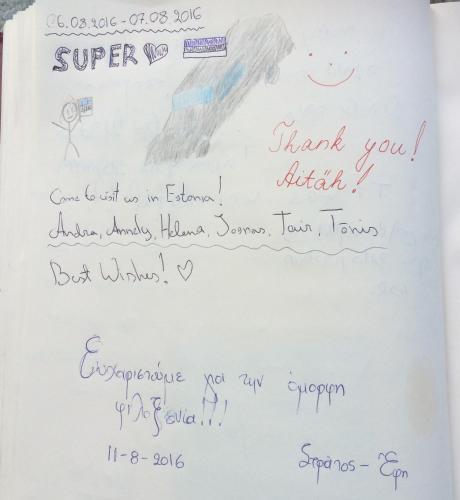 06.08.2016 - 07.08 2016
SUPER
Thank you!
Aitäh!
Come to visit us in Estonia!
Andra, Anndy, Helena, Joonas, Tair, Tõnis
Best Wishes! ♡
Ευχαριστούμε για την όμορφη
φιλοξενία!!!
11-8-2016
Στράτος - Έφη